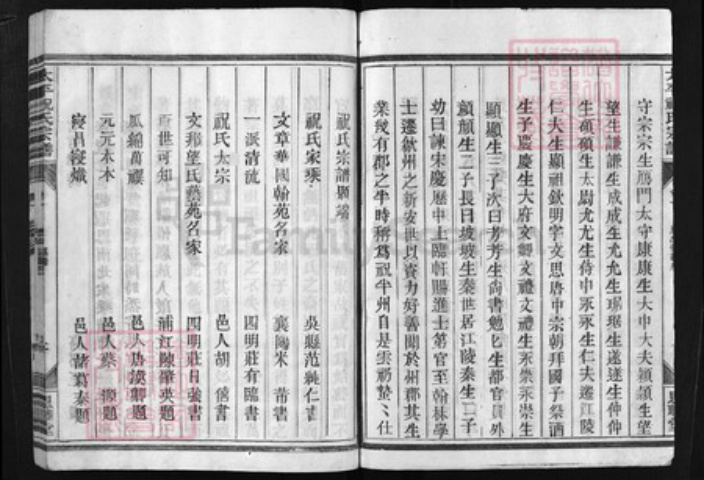 守宗宗生鴈門太守康康生大中大夫穎穎生望
望生謙謙生成成生尤尤生琚琚生遂遂生伸伸
生碩碩生太尉尤尤生侍中永永生仁夫遷江陵
仁夫生顯祖欽明字文思唐中宗朝拜國子祭酒
生予慶慶生大府文禮文禮生永崇永崇生
顯顯生三子次曰芳芳生尚書勉勉生都官員外
顗顗生二子長曰坡坡生秦世居江陵秦生二子
幼曰諫宋慶歷中上臨軒賜進士第官至翰林學
士遷歙州之新安世以資力好善聞於州郡其生
業幾有郡之半時稱爲祝半州自是雲礽蟄蟄仕
祝氏宗譜題端
祝氏家乘 吳縣范純仁書
文章華國翰苑名家 襄陽米芾書
一派清流 四明莊有臨書
祝氏太宗 邑人胡儲書
文邦望氏藝苑名家 四明莊日強書
奕世可知 浦江陳肇英題
瓜綿萬禩 邑人唐漢卿題
元元本本 邑人葉題
寖昌寖熾 邑人諸葛泰題
太平祝氏宗譜